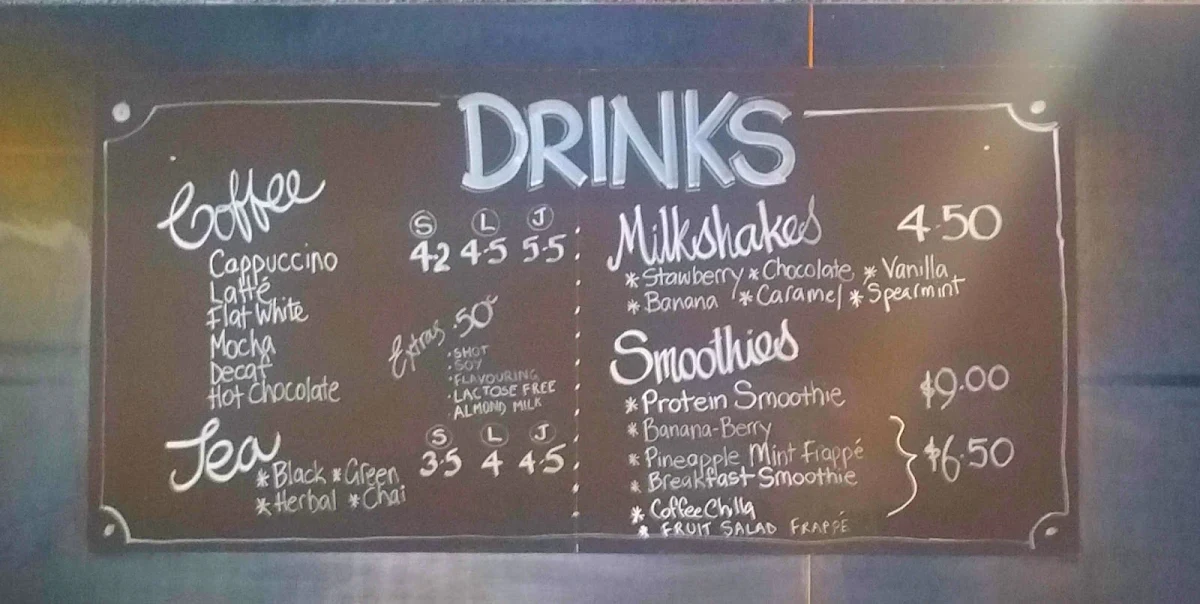 DRINKS
Coffee
S L J
4.2 4.5 5.5
Cappuccino
Latté
Flat White
Mocha
Decaf
Hot Chocolate
Extras .50c
• SHOT
• SOY
• FLAVOURING
• LACTOSE FREE
• ALMOND MILK
Tea
S L J
3.5 4 4.5
* Black * Green
* Herbal * Chai
Milkshakes 4.50
* Stawberry * Chocolate * Vanilla
* Banana * Caramel * Spearmint
Smoothies
* Protein Smoothie $9.00
* Banana-Berry
* Pineapple Mint Frappé
* Breakfast Smoothie
$6.50
* Coffee Chilla
* FRUIT SALAD FRAPPÉ